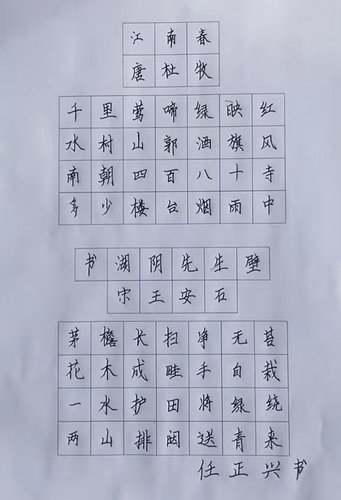 江南春
唐杜牧
千里莺啼绿映红
水村山郭酒旗风
南朝四百八十寺
多少楼台烟雨中
书湖阴先生壁
宋王安石
茅檐长扫净无苔
花木成畦手自栽
一水护田将绿绕
两山排闼送青来
任正兴书